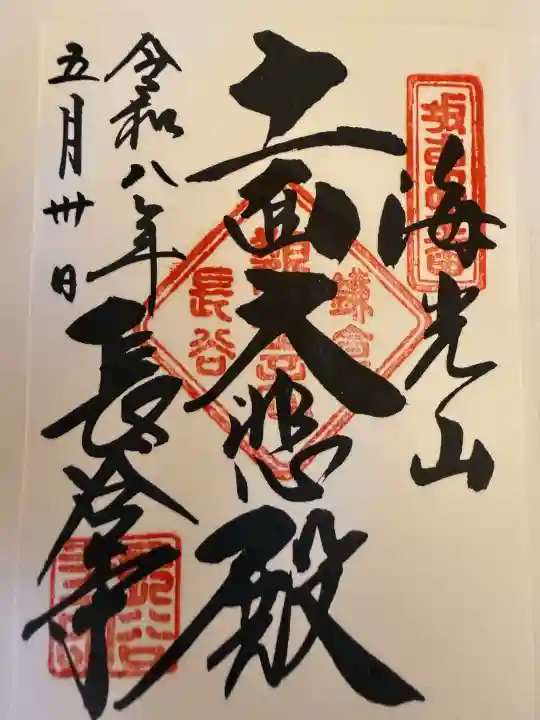 海光山
十一面大悲殿
長谷寺
令和八年
五月卅日
坂東四番
鎌倉
長谷